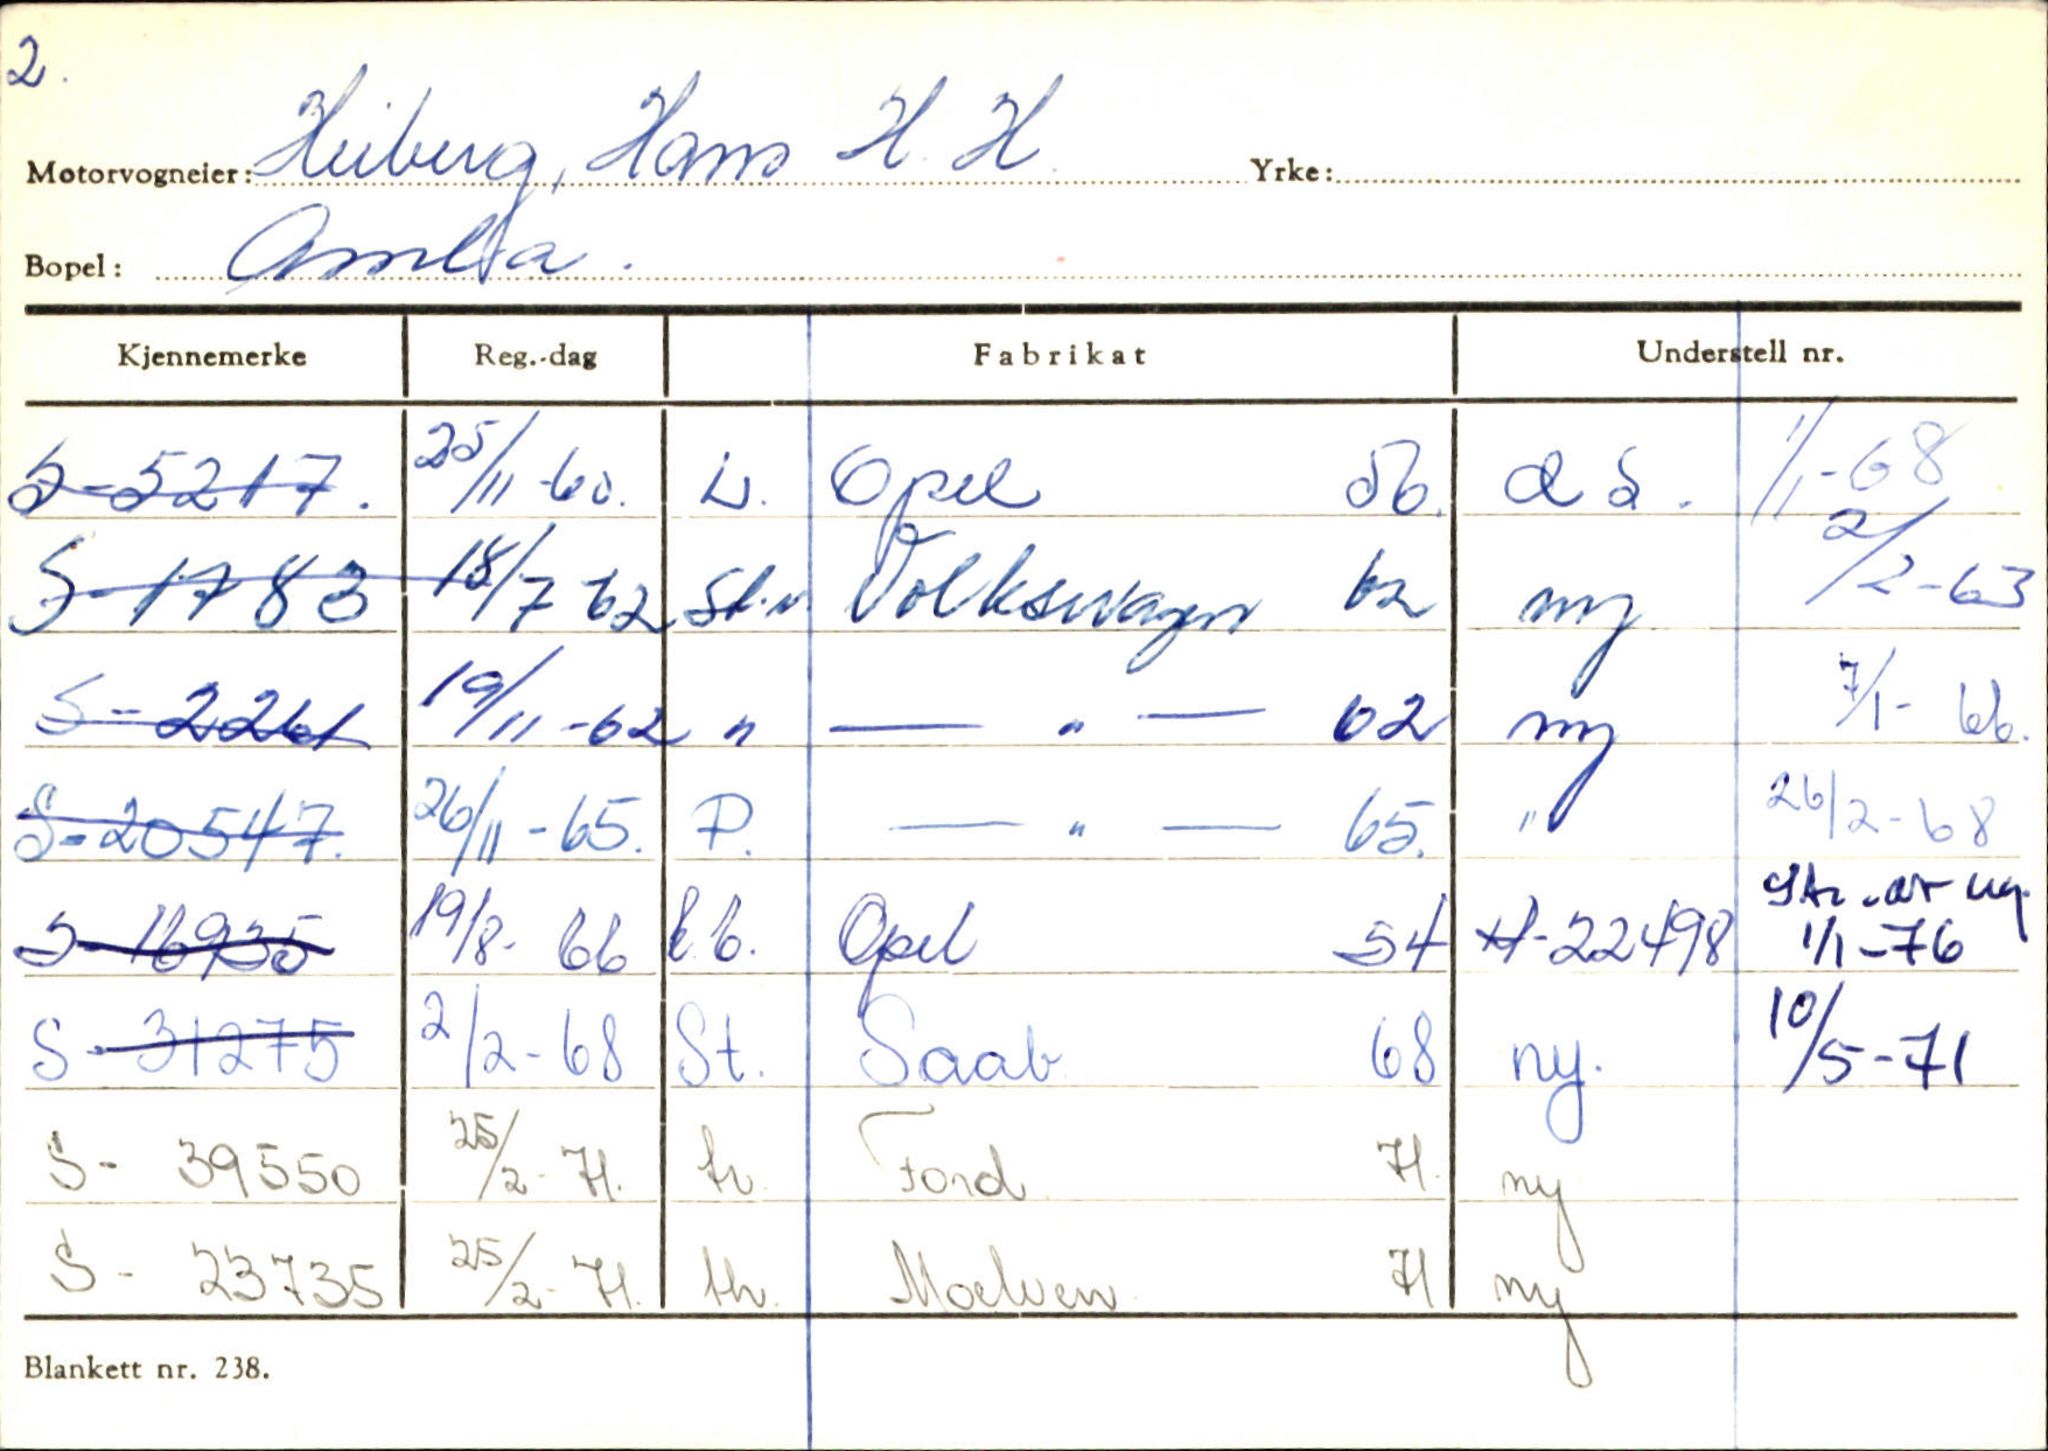 2.
Motorvogneier: Heiberg, Hans H. H. Yrke:
Bopel: Amla.
Kjennemerke Reg.-dag Fabrikat Understell nr.
S-5217. 25/11-60. L. Opel 56. d S. 1/1-68
S-1783 18/7 62 St.v Volkswagn 62 ny 2/2-63
S-2261 19/11-62 " — " — 02 ny 7/1-66.
S-20547. 26/11-65. P. — " — 65. " 26/2-68
S-16935 19/8-66 l.b. Opel 54 22498 1/1-76
S-31275 2/2-68 St. Saab 68 ny. 10/5-71
S- 39550 25/2-71. Ford 71. ny
S- 23735 25/2-71. Moelven 71 ny
Blankett nr. 238.